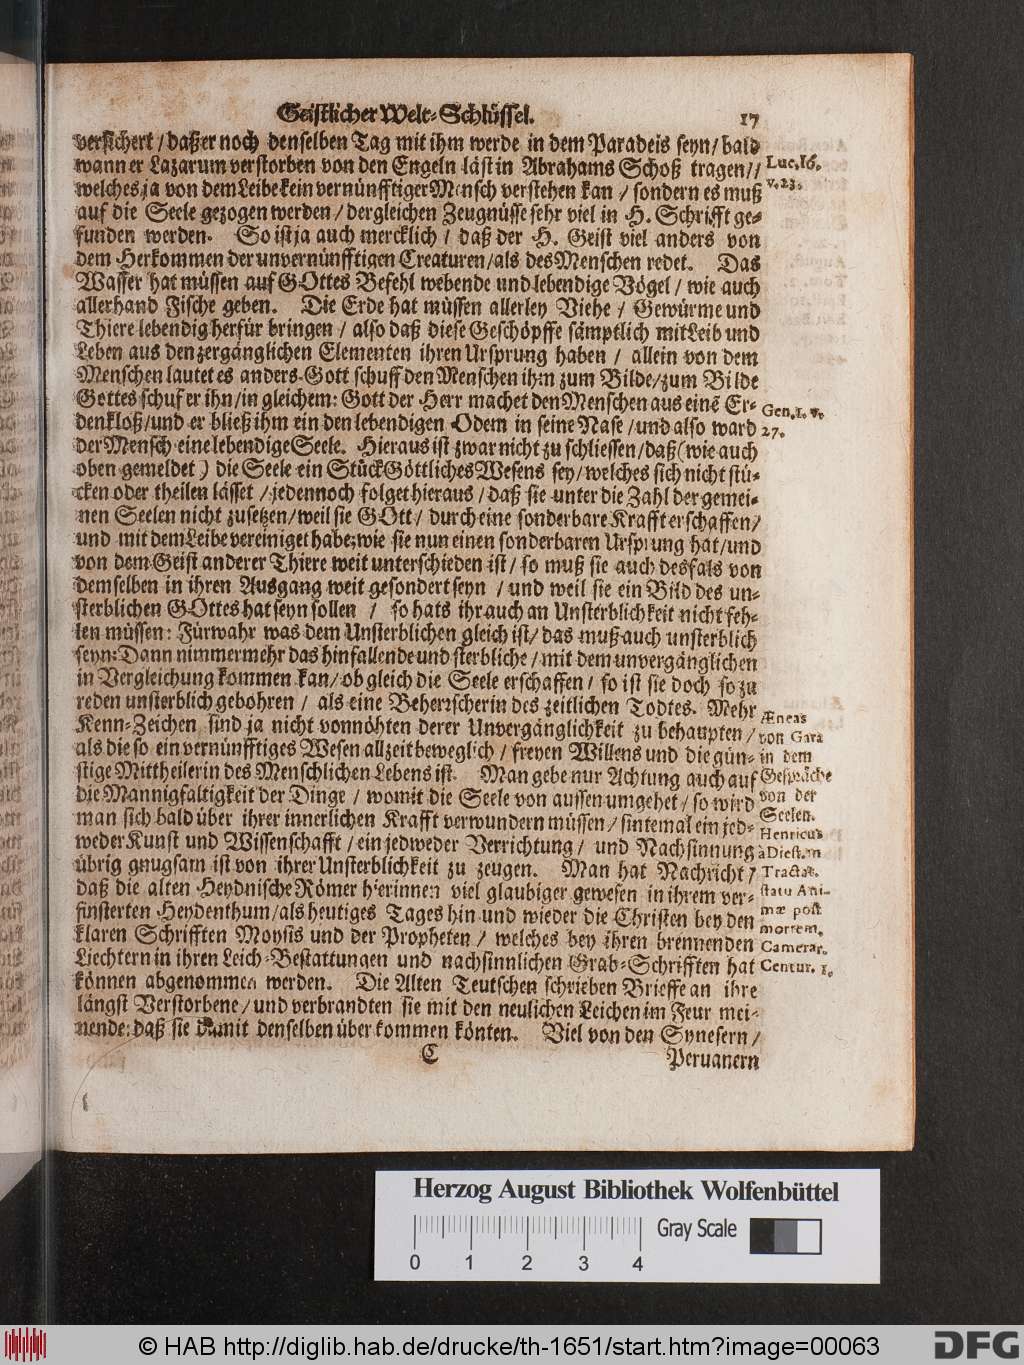 Geistlicher Welt-Schlüssel. 17
versichert / daß er noch denselben Tag mit ihm werde in dem Paradeis seyn / bald
wann er Lazarum verstorben von den Engeln läst in Abrahams Schoß tragen / /
welches ja von dem Leibe kein vernünfftiger Mensch verstehen kan / sondern es muß
auf die Seele gezogen werden / dergleichen Zeugnüsse sehr viel in H. Schrifft ge-
funden werden. So ist ja auch mercklich / daß der H. Geist viel anders von
dem Herkommen der unvernünfftigen Creaturen / als des Menschen redet. Das
Wasser hat müssen auf GOttes Befehl webende und lebendige Vögel / wie auch
allerhand Fische geben. Die Erde hat müssen allerley Viehe / Gewürme und
Thiere lebendig herfür bringen / also daß diese Geschöpffe sämptlich mit Leib und
Leben aus den zergänglichen Elementen ihren Ursprung haben / allein von dem
Menschen lautet es anders. Gott schuff den Menschen ihm zum Bilde / zum Bilde
Gottes schuf er ihn / in gleichem: Gott der Herr machet den Menschen aus einē Er-
denkloß / und er bließ ihm ein den lebendigen Odem in seine Nase / und also ward
der Mensch eine lebendige Seele. Hieraus ist zwar nicht zu schliessen / daß (wie auch
oben gemeldet) die Seele ein Stück Göttliches Wesens sey / welches sich nicht stü-
cken oder theilen lässet / jedennoch folget hieraus / daß sie unter die Zahl der gemei-
nen Seelen nicht zusetzen / weil sie GOtt / durch eine sonderbare Krafft erschaffen /
und mit dem Leibe vereiniget habe; wie sie nun einen sonderbaren Ursprung hat / und
von dem Geist anderer Thiere weit unterschieden ist / so muß sie auch desfals von
demselben in ihren Ausgang weit gesondert seyn / und weil sie ein Bild des un-
sterblichen GOttes hat seyn sollen / so hats ihr auch an Unsterblichkeit nicht feh-
len müssen: Fürwahr was dem Unsterblichen gleich ist / das muß auch unsterblich
seyn: Dann nimmermehr das hinfallende und sterbliche / mit dem unvergänglichen
in Vergleichung kommen kan / ob gleich die Seele erschaffen / so ist sie doch so zu
reden unsterblich gebohren / als eine Beherrscherin des zeitlichen Todtes. Mehr
Kenn-Zeichen sind ja nicht vonnöhten derer Unvergänglichkeit zu behaupten /
als die so ein vernünfftiges Wesen allzeit beweglich / freyen Willens und die gün-
stige Mittheilerin des Menschlichen Lebens ist. Man gebe nur Achtung auch auf
die Mannigfaltigkeit der Dinge / womit die Seele von aussen umgehet / so wird
man sich bald über ihrer innerlichen Krafft verwundern müssen / sintemal ein jed-
weder Kunst und Wissenschafft / ein jedweder Verrichtung / und Nachsinnung
übrig gnugsam ist von ihrer Unsterblichkeit zu zeugen. Man hat Nachricht /
daß die alten Heydnische Römer hierinnen viel glaubiger gewesen in ihrem ver-
finsterten Heydenthum / als heutiges Tages hin und wieder die Christen bey den
klaren Schrifften Moysis und der Propheten / welches bey ihren brennenden
Liechtern in ihren Leich-Bestattungen und nachsinnlichen Grab-Schrifften hat
können abgenommen werden. Die Alten Teutschen schrieben Brieffe an ihre
längst Verstorbene / und verbrandten sie mit den neulichen Leichen im Feur mei-
nende: daß sie damit denselben über kommen könten. Viel von den Synesern /
C Peruanern
Luc. 16.
v. 23.
Gen. 1. v.
27.
Æneas
von Gara
in dem
Gespräche
von der
Seelen.
Henricus
à Diest. in
Tractat.
statu Ani-
mæ post
mortem.
Camerar.
Centur. 1.
Herzog August Bibliothek Wolfenbüttel
Gray Scale
0 1 2 3 4
© HAB http://diglib.hab.de/drucke/th-1651/start.htm?image=00063
DFG